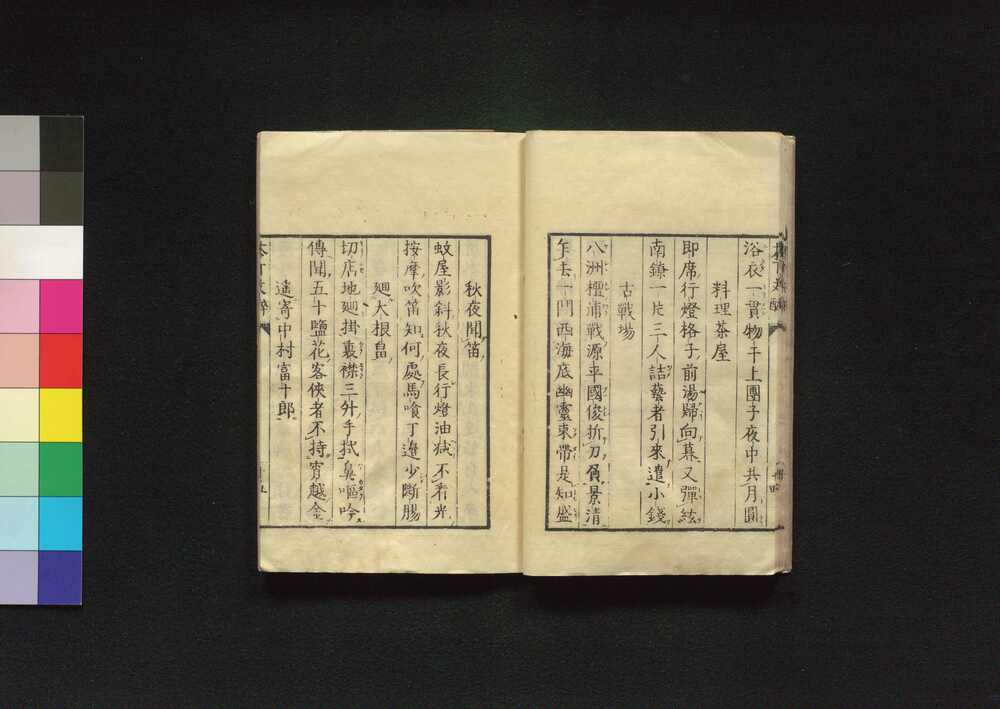 浴衣一貫物干上團子夜中共月圓
料理茶屋
即席行燈格子前湯歸向幕又彈絃
南鐐一片三人詰藝者引來遣小錢
古戰場
八洲檀浦戰源平國俊折刀負景清
年去一門西海底幽靈束帶是知盛
秋夜聞笛
蚊屋影斜秋夜長行燈油減不看光
按摩吹笛知何處馬喰丁邊少斷腸
廻大根畠
切店地廻掛裏襟三外手拭鼻嘔吟
傳聞五十鹽花客俠者不持寳越金
遙寄中村富十郎